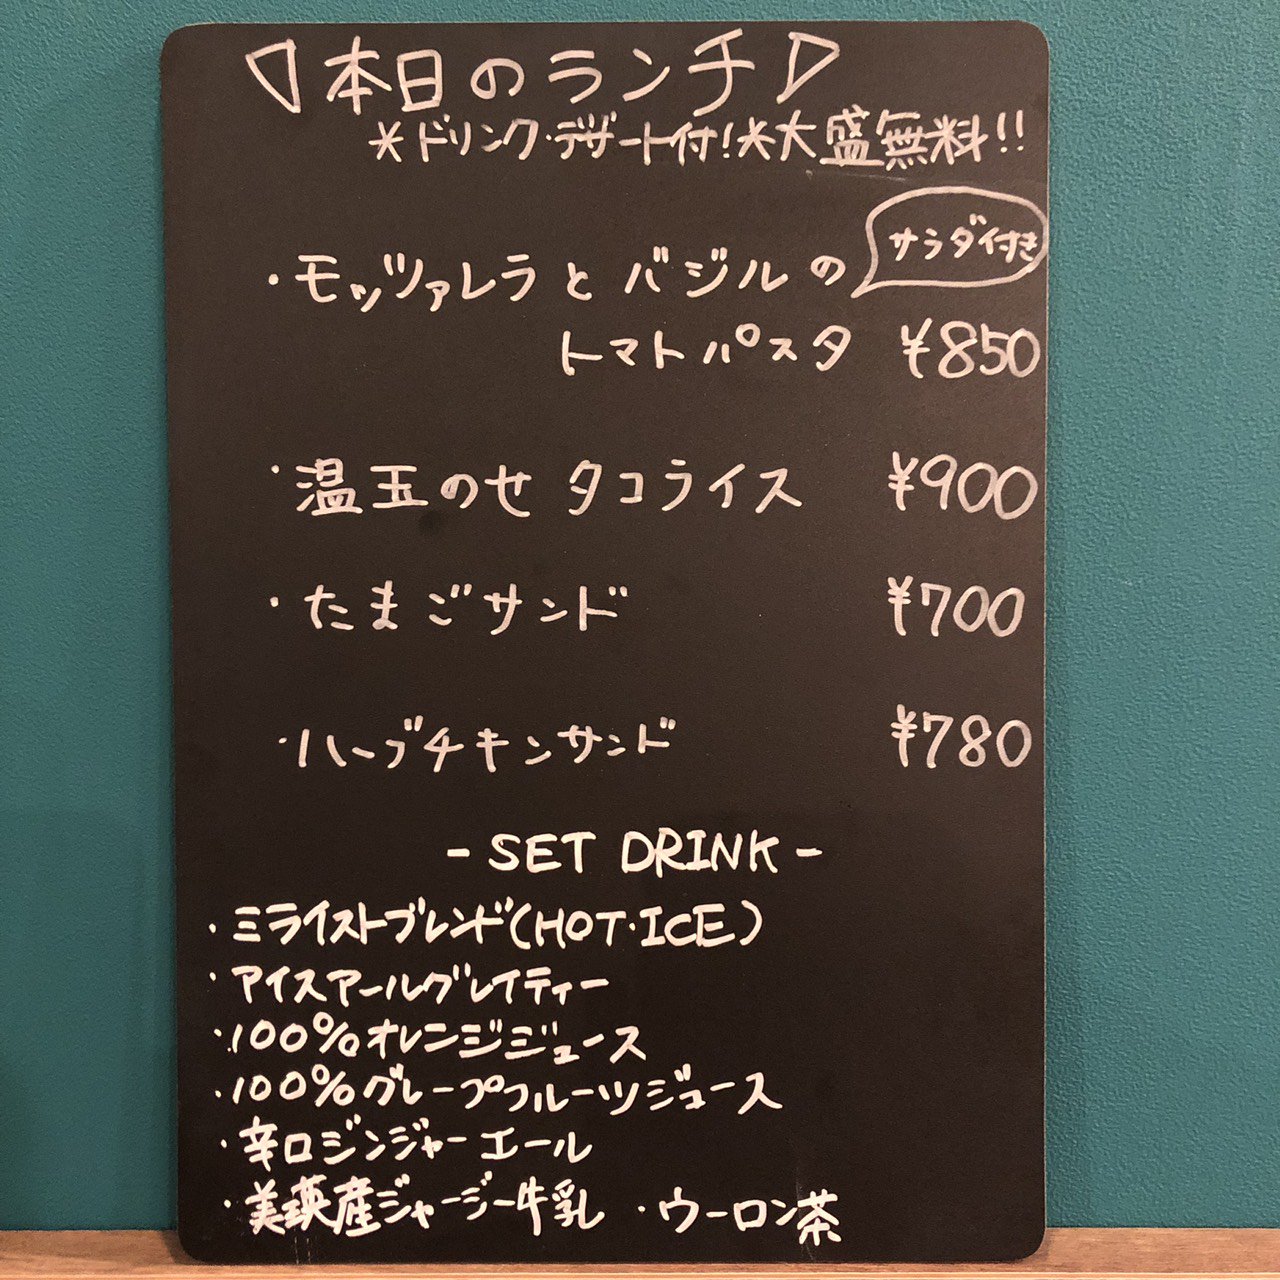 ▽本日のランチ▽
*ドリンク・デザート付!*大盛無料!!
サラダ付き
・モッツァレラとバジルの
トマトパスタ ¥850
・温玉のせタコライス ¥900
・たまごサンド ¥700
・ハーブチキンサンド ¥780
- SET DRINK -
・ミライストブレンド(HOT・ICE)
・アイスアールグレイティー
・100%オレンジジュース
・100%グレープフルーツジュース
・辛口ジンジャーエール
・美瑛産ジャージー牛乳 ・ウーロン茶